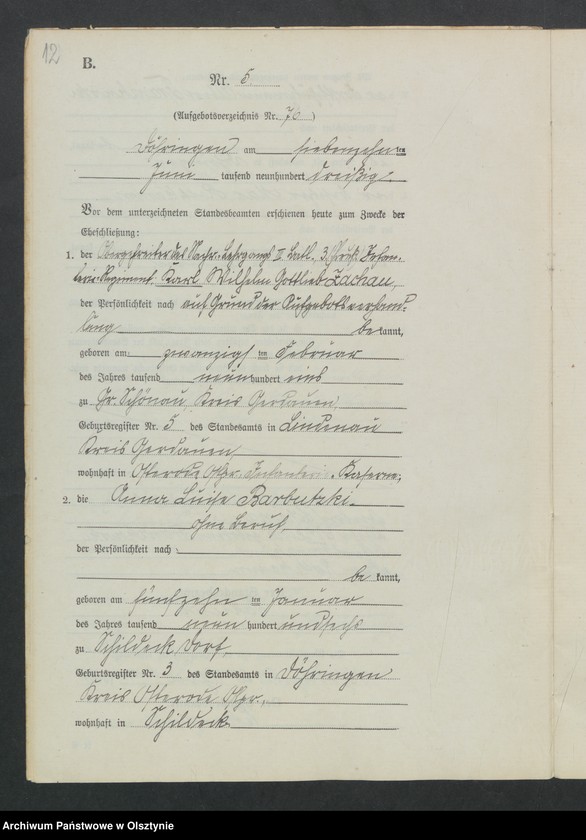 12
B.
Nr. 5
(Aufgebotsverzeichnis Nr. 70)
Döhringen am siebenzehn ten
Juni tausend neunhundert dreißig.
Vor dem unterzeichneten Standesbeamten erschienen heute zum Zwecke der
Eheschließung:
1. der Obergefreiter des Nachr. Lehrgangs II. Batl. 3. Preuß. Infan-
terie-Regiment Karl Wilhelm Gottlieb Zachau,
der Persönlichkeit nach auf Grund der Aufgebotsverhand-
lung bekannt,
geboren am zwanzigs ten Februar
des Jahres tausend neunhundert eins
zu Gr. Schönau, Kreis Gerdauen,
Geburtsregister Nr. 5 des Standesamts in Lindenau
Kreis Gerdauen,
wohnhaft in Osterode Ostpr. Infanterie-Kaserne,
2. die Anna Luise Barbutzki,
ohne Beruf,
der Persönlichkeit nach
be kannt,
geboren am fünfzehn ten Januar
des Jahres tausend neun hundert und sechs
zu Schildeck Dorf,
Geburtsregister Nr. 3 des Standesamts in Döhringen
Kreis Osterode Ostpr.,
wohnhaft in Schildeck
Archiwum Państwowe w Olsztynie